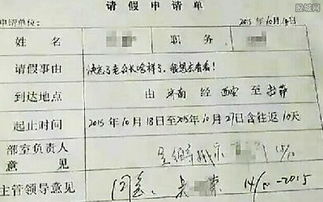 请假申请单
申请单位: 2015年10月14日
姓名 职务
请假事由 决定了老公长啥样子,我想去看看!
到达地点 由 济南 经 西安 至 拉萨
起止时间 2015年10月18日至2015年10月27日含往返10天
部室负责人
意见
主管领导意见 同意 14/10-2015